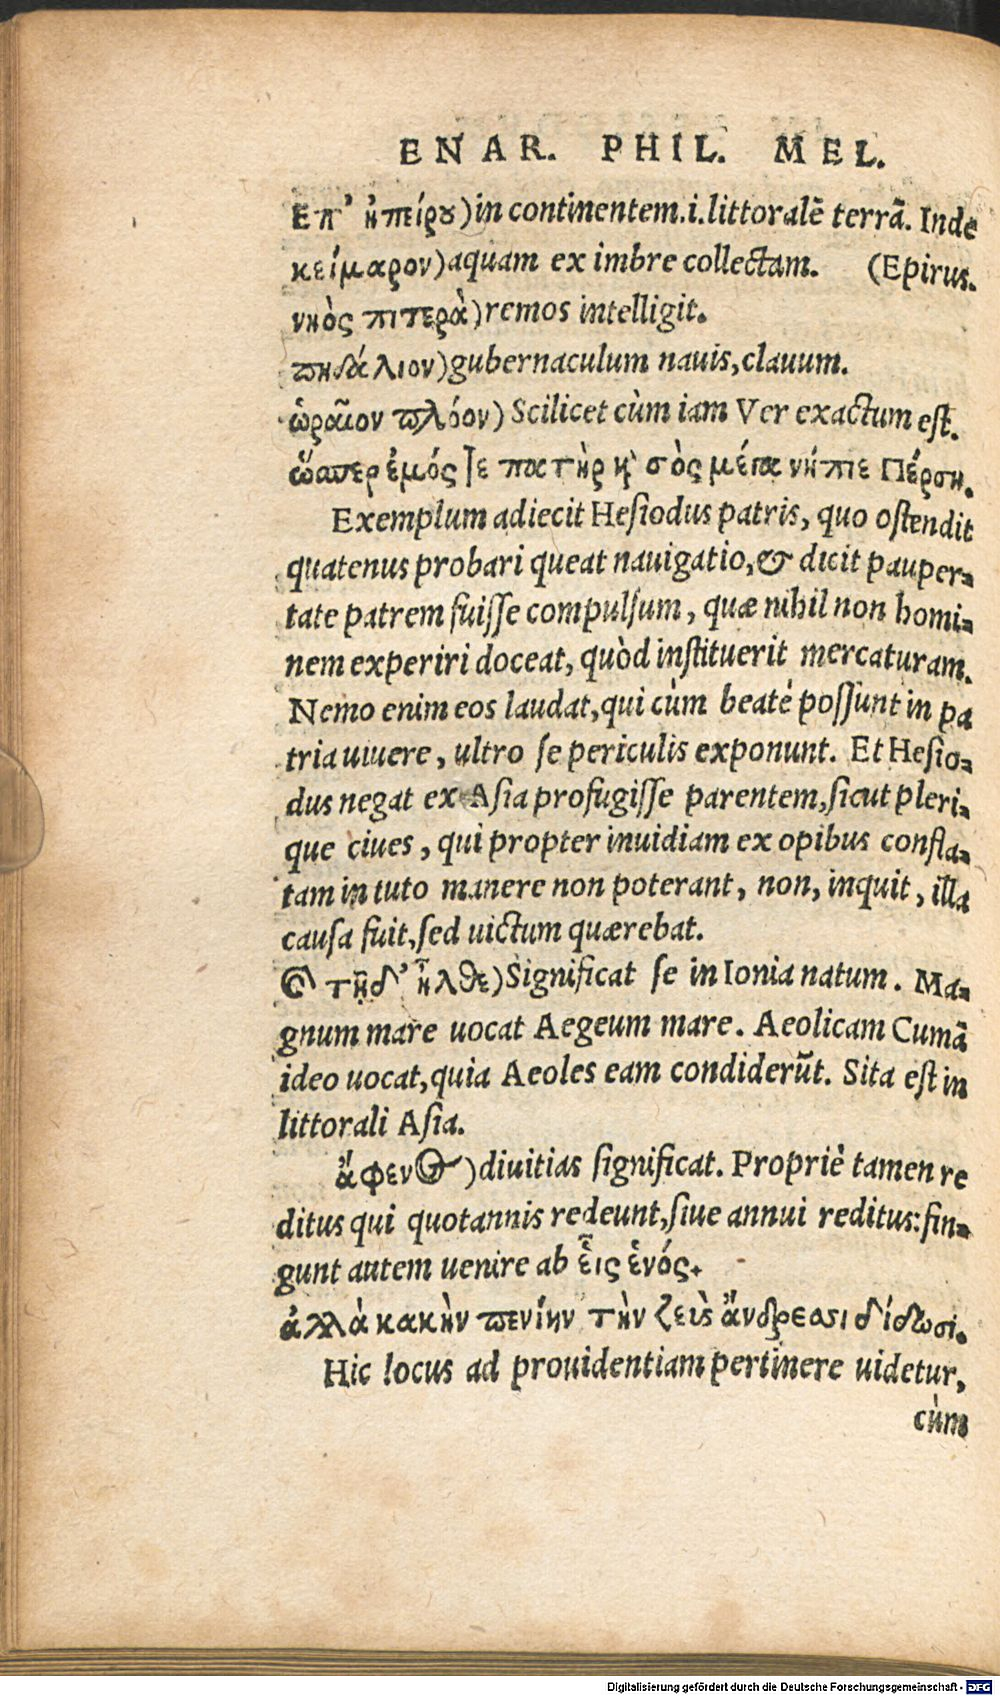 ENAR. PHIL. MEL.
Επ' ἠπείρου) in continentem .i. littoralẽ terrã. Inde
κείμαρον) aquam ex imbre collectam. (Epirus.
νηὸς πιτερὰ) remos intelligit.
πηδάλιον) gubernaculum nauis, clauum.
ὡραῖον πλόον) Scilicet cùm iam Ver exactum est.
ὥσπερ ἐμός τε πατὴρ κ̀ σὸς μέγα νήπιε Πέρση.
Exemplum adiecit Hesiodus patris, quo ostendit
quatenus probari queat nauigatio, & dicit pauper-
tate patrem fuisse compulsum, quæ nihil non homi-
nem experiri doceat, quòd instituerit mercaturam.
Nemo enim eos laudat, qui cùm beatè possunt in pa
tria uiuere, ultro se periculis exponunt. Et Hesio-
dus negat ex Asia profugisse parentem, sicut pleri-
que ciues, qui propter inuidiam ex opibus confla-
tam in tuto manere non poterant, non, inquit, illa
causa fuit, sed uictum quærebat.
Ὃς τῇδ' ἦλθε) Significat se in Ionia natum. Ma-
gnum mare uocat Aegeum mare. Aeolicam Cumã
ideo uocat, quia Aeoles eam condiderũt. Sita est in
littorali Asia.
ἄφενος) diuitias significat. Propriè tamen re
ditus qui quotannis redeunt, siue annui reditus: fin-
gunt autem uenire ab εἷς ἑνός.
ἀλλὰ κακὴν πενίην τὴν ζεὺς ἄνδρεσσι δίδωσι.
Hic locus ad prouidentiam pertinere uidetur,
cùm
Digitalisierung gefördert durch die Deutsche Forschungsgemeinschaft - DFG